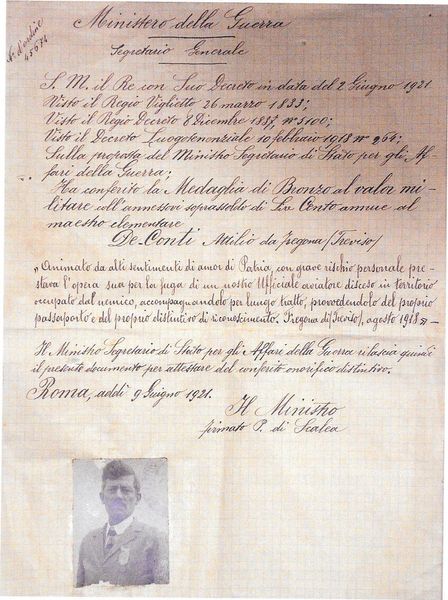 Ministero della Guerra
N. d'ordine
45674
Segretario Generale
S. M. il Re con Suo Decreto in data del 2 Giugno 1921
Visto il Regio Viglietto 26 marzo 1833;
Visto il Regio Decreto 8 Dicembre 1887, n° 5100;
Visto il Decreto Luogotenenziale 10 febbraio 1918 n° 264;
Sulla proposta del Ministro Segretario di Stato per gli Af-
fari della Guerra;
Ha conferito la Medaglia di Bronzo al valor mi-
litare coll'annessovi soprassoldo di Lire Cento annue al
maestro elementare
De-Conti Attilio da Fregona (Treviso)
"Animato da alti sentimenti di amor di Patria, con grave rischio personale pre-
stava l'opera sua per la fuga di un nostro Ufficiale aviatore disceso in territorio
occupato dal nemico, accompagnandolo per lungo tratto, provvedendolo del proprio
passaporto e del proprio distintivo di riconoscimento. Fregona (Treviso), agosto 1918
Il Ministro Segretario di Stato per gli Affari della Guerra rilascia quindi
il presente documento per attestare del conferito onorifico distintivo.
Roma, addì 9 Giugno 1921.
Il Ministro
firmato P. di Scalea